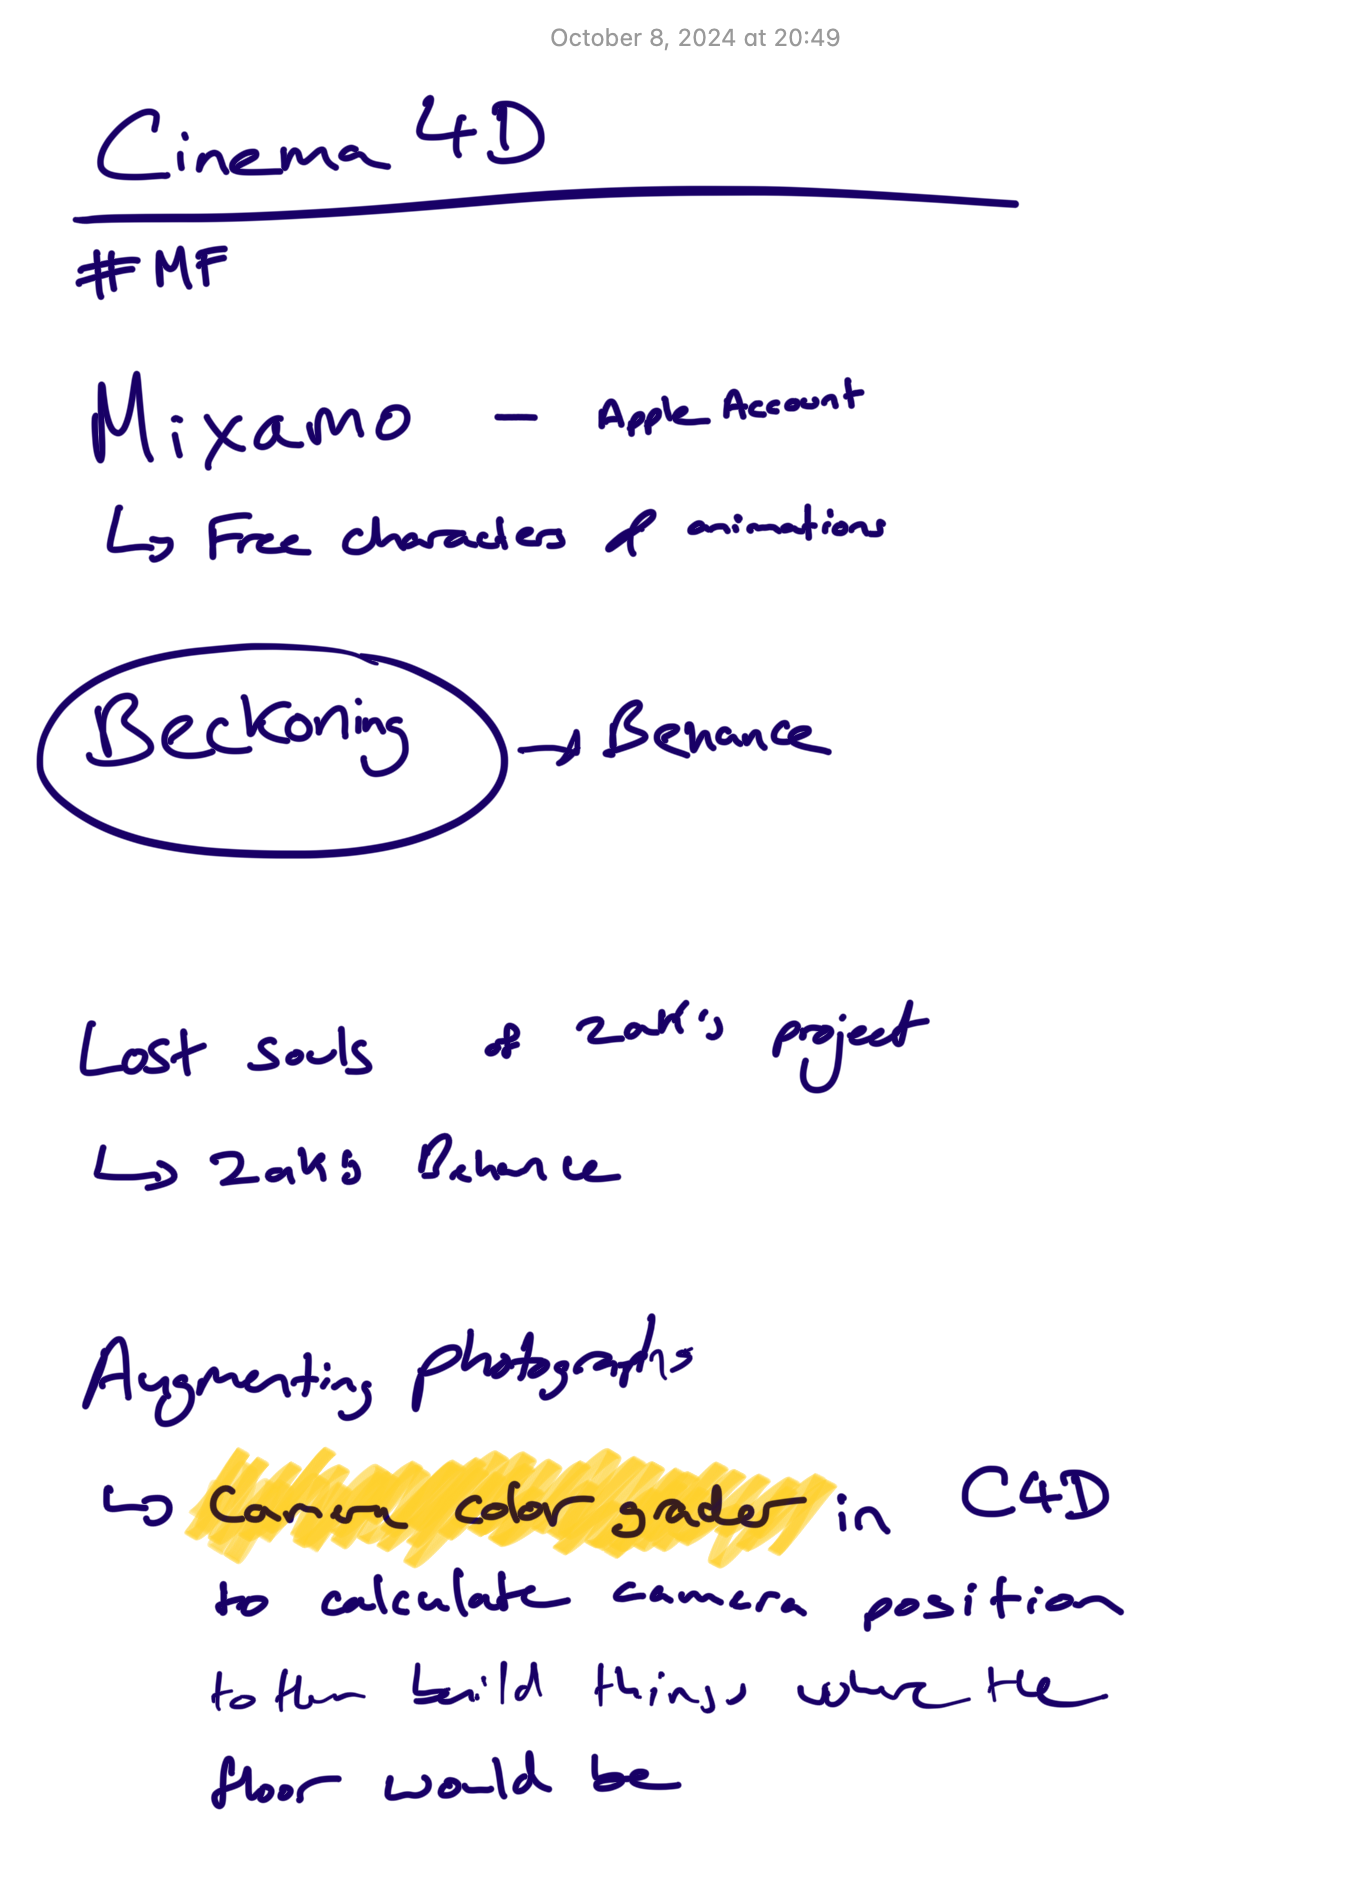 October 8, 2024 at 20:49
Cinema 4D
#MF
Mixamo – Apple Account
↳ Free characters & animations
Beckoning → Behance
Lost souls of Zak's project
↳ Zaks Behance
Augmenting photographs
↳ Camera color grader in C4D
to calculate camera position
to then build things where the
floor would be